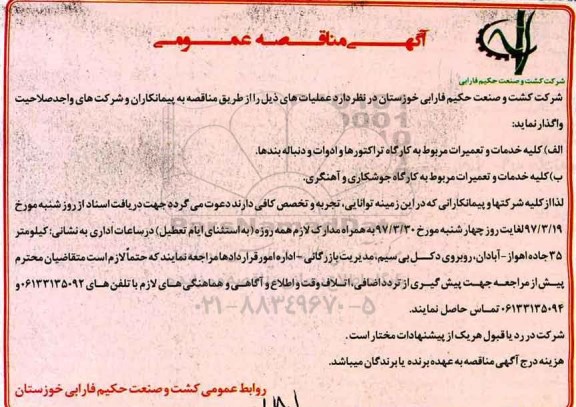 آگهی مناقصه عمومی
شرکت کشت و صنعت حکیم فارابی
شرکت کشت و صنعت حکیم فارابی خوزستان در نظر دارد عملیات های ذیل را از طریق مناقصه به پیمانکاران و شرکت های واجد صلاحیت
واگذار نماید:
الف) کلیه خدمات و تعمیرات مربوط به کارگاه تراکتورها و ادوات و دنباله بندها.
ب) کلیه خدمات و تعمیرات مربوط به کارگاه جوشکاری و آهنگری.
لذا از کلیه شرکتها و پیمانکارانی که در این زمینه توانایی، تجربه و تخصص کافی دارند دعوت می گردد جهت دریافت اسناد از روز شنبه مورخ
۹۷/۳/۱۹ لغایت روز چهار شنبه مورخ ۹۷/۳/۳۰ به همراه مدارک لازم همه روزه (به استثنای ایام تعطیل) در ساعات اداری به نشانی: کیلومتر
۳۵ جاده اهواز - آبادان، روبروی دکل بی سیم، مدیریت بازرگانی - اداره امور قراردادها مراجعه نمایند که حتماً لازم است متقاضیان محترم
پیش از مراجعه جهت پیش گیری از تردد اضافی، اتلاف وقت و اطلاع و آگاهی و هماهنگی های لازم با تلفن های ۰۶۱۳۳۱۳۵۰۹۲ و
۰۶۱۳۳۱۳۵۰۹۴ تماس حاصل نمایند.
۰۲۱-۸۸۳۴۹۶۷۰-۵
شرکت در رد یا قبول هر یک از پیشنهادات مختار است.
هزینه درج آگهی مناقصه به عهده برنده یا برندگان میباشد.
روابط عمومی کشت و صنعت حکیم فارابی خوزستان